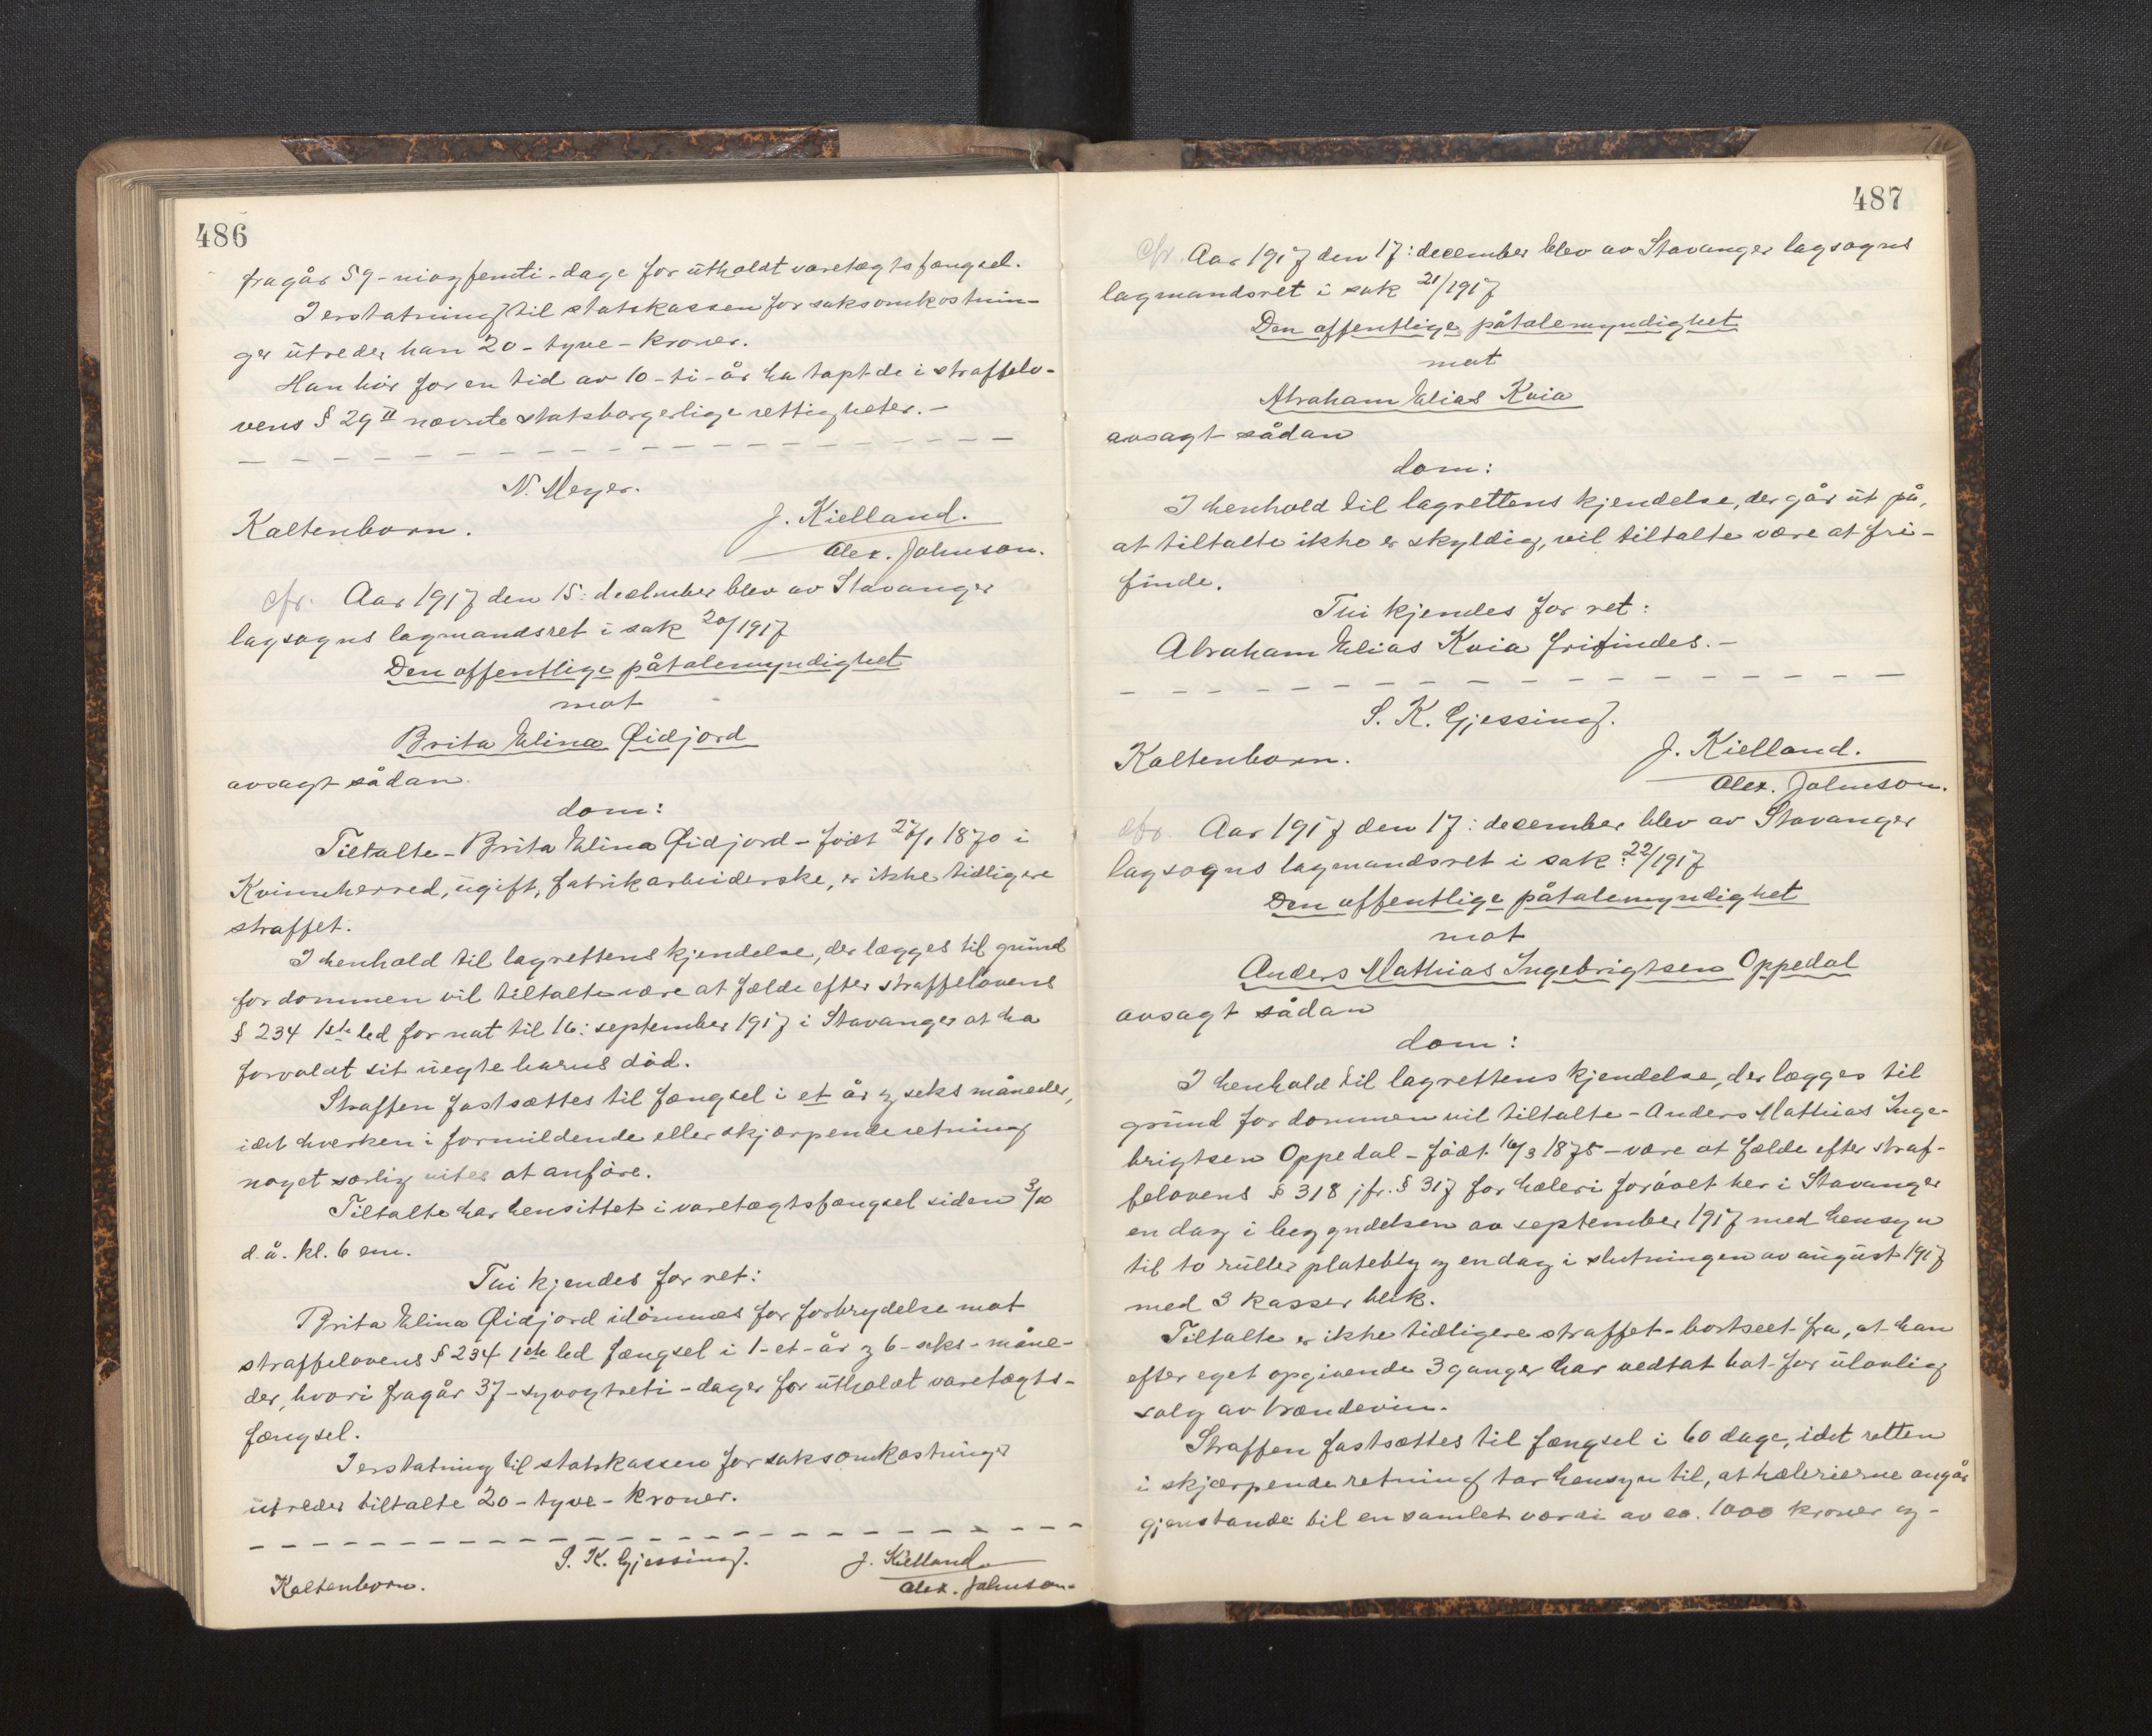 486
fragår 59-niogfemti-dage for utholdt varetægtsfængsel.
I erstatning til statskassen for saksomkostnin-
ger utreder han 20-tyve-kroner.
Han bör for en tid av 10-ti-år ha tapt de i straffelo-
vens § 29 II nævnte statsborgerlige rettigheter.-
N. Meyer.
Kaltenborn.
J. Kielland.
Alex. Johnson.
cfr. Aar 1917 den 15: december blev av Stavanger
lagsogns lagmandsret i sak 20/1917
Den offentlige påtalemyndighet
mot
Brita Elina Øidjord
avsagt sådan
dom:
Tiltalte - Brita Elina Øidjord - födt 1870 i
Kvinnherred, ugift, fabrikarbeiderske, er ikke tidligere
straffet.
I henhold til lagrettens kjendelse, der lægges til grund
for dommen vil tiltalte være at fælde efter straffelovens
§ 234 1ste led for nat til 16: september 1917 i Stavanger at ha
forvoldt sit uegte barns död.
Straffen fastsættes til fængsel i et år og seks måneder,
idet hverken i formildende eller skjærpende retning
noget særlig vites at anföre.
Tiltalte har hensittet i varetægtsfængsel siden 3/10
d.å. kl. 6 em.
Thi kjendes for ret:
Brita Elina Øidjord idömmes for forbrydelse mot
straffelovens § 234 1ste led fængsel i 1-et-år og 6-seks-måne-
der, hvori fragår 37-syvogtreti-dager for utholdt varetægts-
fængsel.
I erstatning til statskassen for saksomkostninger
utreder tiltalte 20-tyve-kroner.
S. K. Gjessing.
J. Kielland
Kaltenborn.
Alex. Johnson.
487
cfr. Aar 1917 den 17: december blev av Stavanger lagsogns
lagmandsret i sak 21/1917
Den offentlige påtalemyndighet
mot
Abraham Elias Kvia
avsagt sådan
dom:
I henhold til lagrettens kjendelse, der går ut på,
at tiltalte ikke er skyldig, vil tiltalte være at fri-
finde.
Thi kjendes for ret:
Abraham Elias Kvia frifindes.-
S. K. Gjessing.
Kaltenborn.
J. Kielland.
Alex. Johnson.
cfr. Aar 1917 den 17: december blev av Stavanger
lagsogns lagmandsret i sak: 22/1917
Den offentlige påtalemyndighet
mot
Anders Mathias Ingebrigtsen Oppedal
avsagt sådan
dom:
I henhold til lagrettens kjendelse, der lægges til
grund for dommen vil tiltalte - Anders Mathias Inge-
brigtsen Oppedal - födt 16/3 1875 - være at fælde efter straf-
felovens § 318 jfr. § 317 for hæleri forövet her i Stavanger
en dag i begyndelsen av september 1917 med hensyn
til to ruller platebly og en dag i slutningen av august 1917
med 3 kasser blik.
Tiltalte er ikke tidligere straffet - bortseet fra, at han
efter eget opgivende 3 ganger har vedtat bot for ulovlig
salg av brændevin.
Straffen fastsættes til fængsel i 60 dage, idet retten
i skjærpende retning tar hensyn til, at hælerierne angår
gjenstande til en samlet værdi av ca. 1000 kroner og-